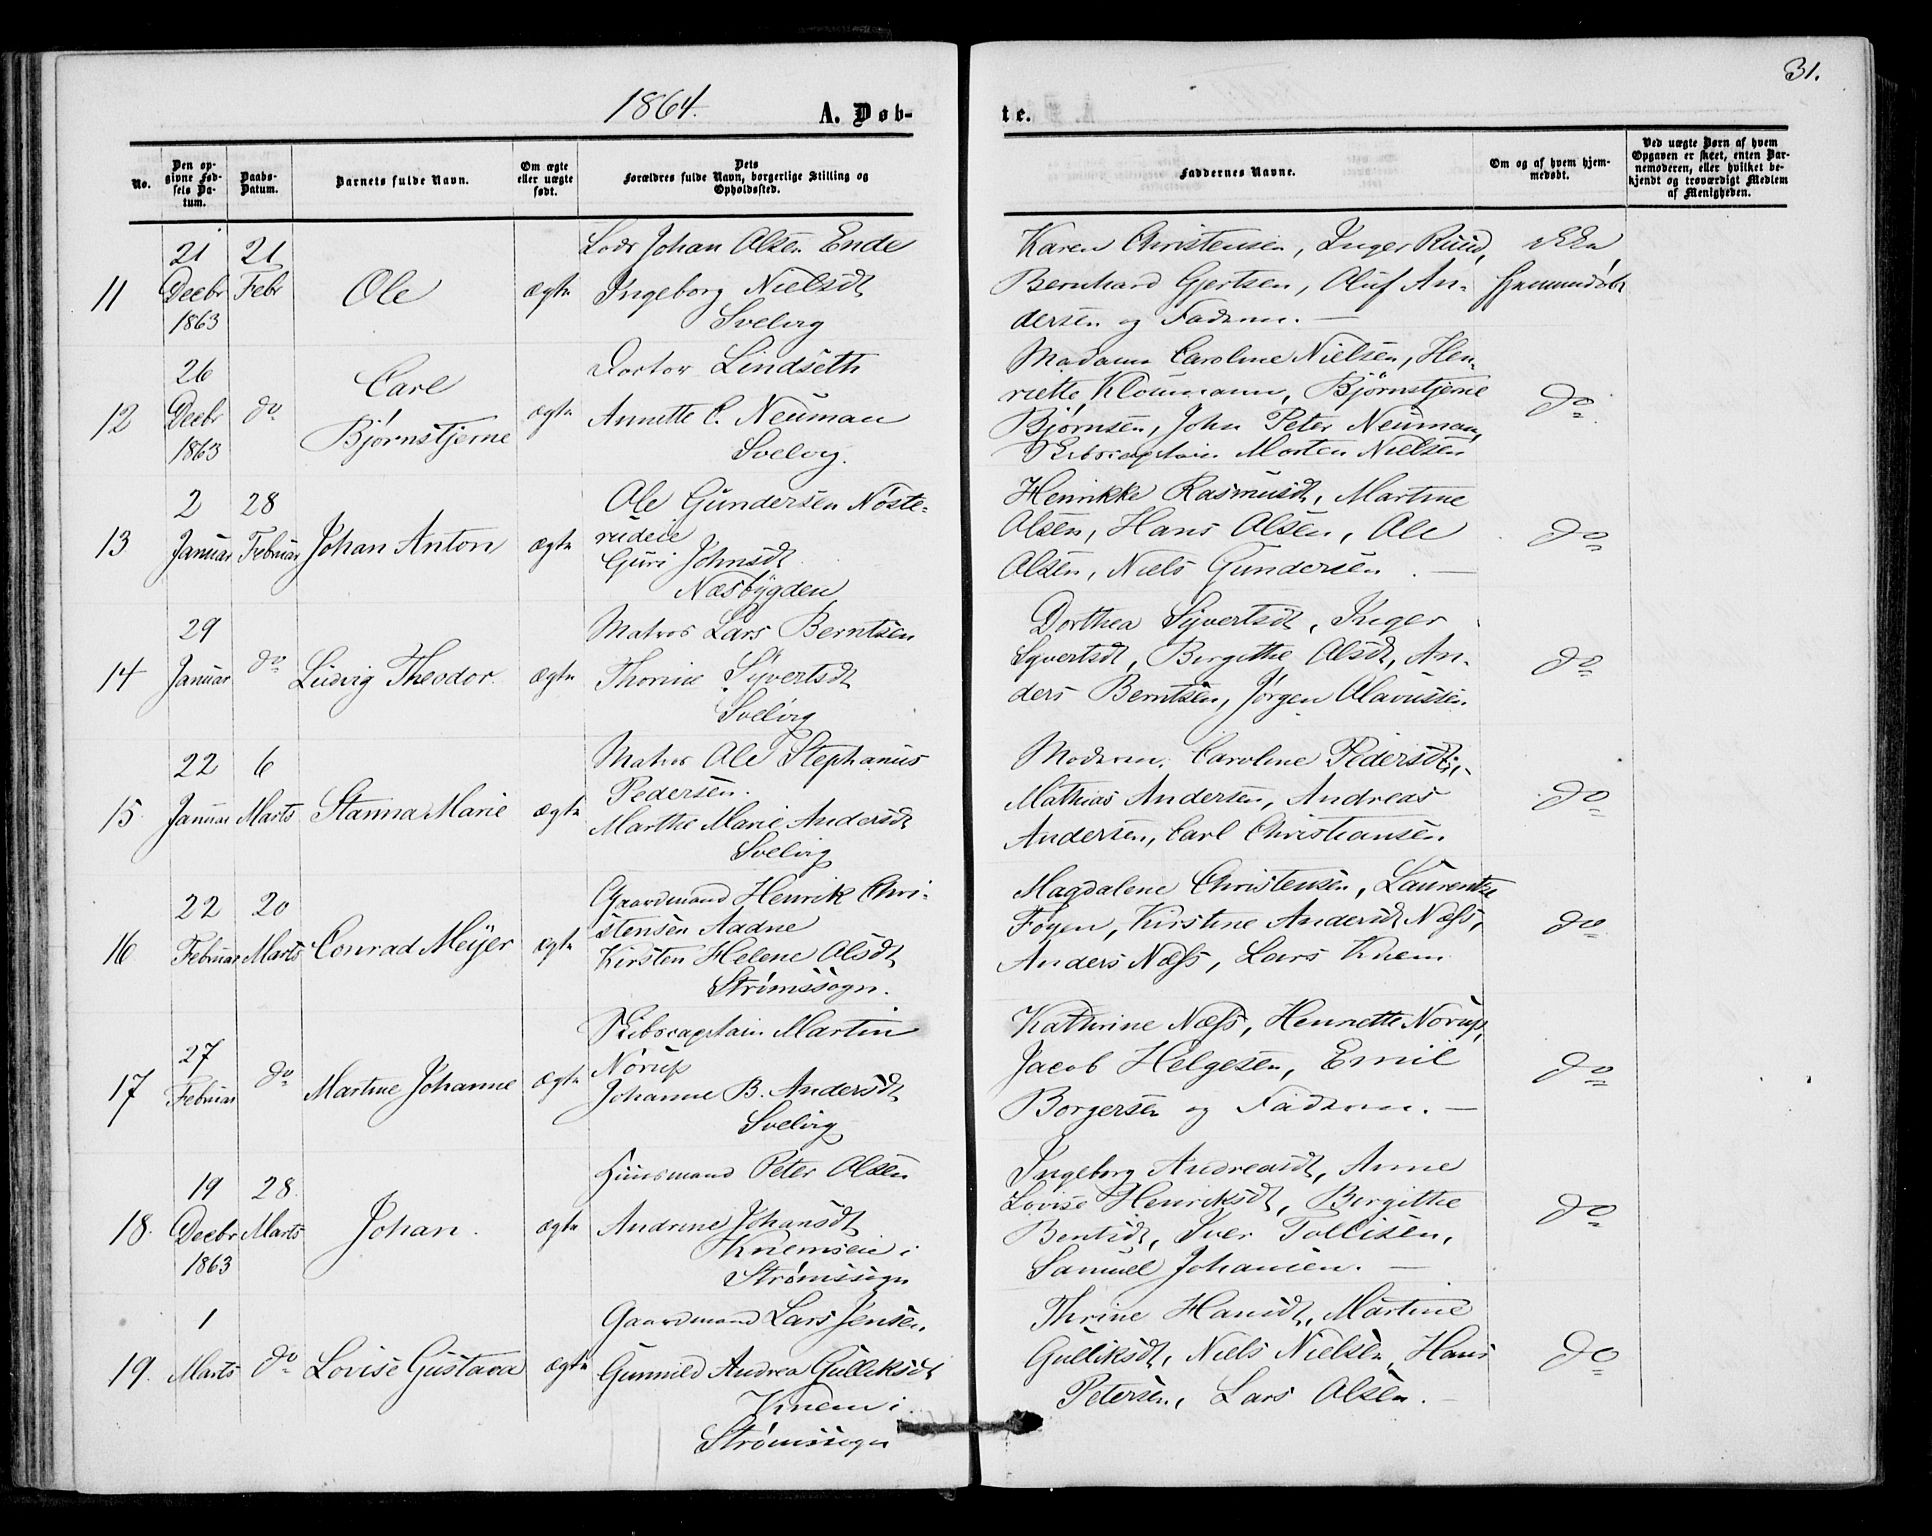 1864.
A. Døb-
te.
31.
No.
Den op-
givne Fød-
sels Da-
tum.
Daabs-
Datum.
Barnets fulde Navn.
Om ægte
eller uægte
født.
Dets
Forældres fulde Navn, borgerlige Stilling og
Opholdssted.
Faddernes Navne.
Om og af hvem hjem-
medøbt.
Ved uægte Børn af hvem
Opgaven er skeet, enten Bar-
nemoderen, eller hvilket be-
kjendt og troværdigt Medlem
af Menigheden.
11
21
Decbr
1863
21
Febr
Ole
ægte
Lods Johan Olsen Ende
Ingeborg Nielsdt
Svelvig
Karen Christensen, Inger Ruud,
Bernhard Gjertsen, Oluf An-
dersen og Faderen. —
ikke
hjemmedøbt
12
26
Decbr
1863
do
Carl
Bjørnstjerne
ægte
Doctor Lindseth
Annette C. Neuman
Svelvig.
Madame Caroline Nielsen, Hen-
riette Kloumann, Bjørnstjerne
Bjørnsen, John Peter Neuman,
Skibscaptain Morten Nielsen
do
13
2
Januar
28
Februar
Johan Anton
ægte
Ole Gundersen Nøste-
rudeie
Guri Johnsdt
Næsbygden
Henrikke Rasmusdt, Martine
Olsen, Hans Olsen, Ole
Olsen, Niels Gundersen. —
do
14
29
Januar
do
Ludvig Theodor.
ægte
Matros Lars Berntsen
Thorine Syvertsdt
Svelvig
Dorthea Syvertsdt, Inger
Syvertsdt, Birgithe Olsdt, An-
ders Berntsen, Jørgen Olavussen.
do
15.
22
Januar
6
Marts
Stanna Marie
ægte
Matros Ole Stephanus
Pedersen.
Marthe Marie Andersdt
Svelvig
Moderen, Caroline Pedersdt,
Mathias Andersen, Andreas
Andersen, Carl Christiansen.
do
16
22
Februar
20
Marts
Conrad Meyer
ægte
Gaardmand Henrik Chri-
stensen Aadne
Kirsten Helene Olsdt
Strømssogn.
Magdalene Christensen, Laurentze
Føyen, Kirstine Andersdt Næss,
Anders Næss, Lars Knem
do
17
27
Februar
do
Martine Johanne
ægte
Skibscaptain Martin
Nørup
Johanne B. Andersdt
Svelvig
Kathrine Næss, Henriette Nørup,
Jacob Helgesen, Emil
Borgersen og Faderen. —
do
18.
19
Decbr
1863
28
Marts
Johan.
ægte
Huusmand Peter Olsen
Andrine Johansdt
Knemseie i
Strømssogn
Ingeborg Andreasdt, Anne
Lovise Henriksdt, Birgithe
Bentsdt, Iver Tollisen,
Samuel Johansen. —
do
19.
1
Marts
do
Lovise Gustava
ægte
Gaardmand Lars Jensen.
Gunnild Andrea Gulliksdt
Knem i
Strømssogn
Thrine Hansdt, Martine
Gulliksdt, Niels Nielsen, Hans
Petersen, Lars Olsen. —
do